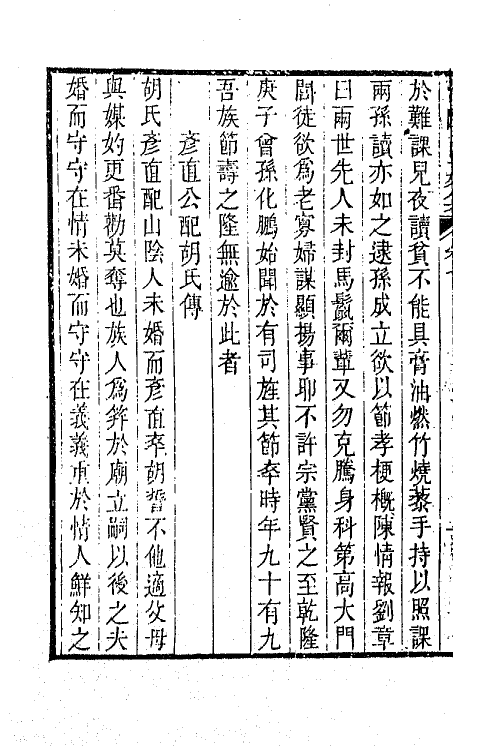 於難課兒夜讀貧不能具膏油燃竹燒藜手持以照課
兩孫讀亦如之逮孫成立欲以節孝梗概陳情報劉章
曰兩世先人未封馬鬛爾輩又勿克騰身科第高大門
閭徒欲爲老寡婦謀顯揚事耶不許宗黨賢之至乾隆
庚子曾孫化鵬始聞於有司旌其節卒時年九十有九
吾族節壽之隆無逾於此者
彦直公配胡氏傳
胡氏彦直配山陰人未婚而彦直卒胡誓不他適父母
與媒妁更番勸莫奪也族人爲筓於廟立嗣以後之夫
婚而守守在情未婚而守守在義義重於情人鮮知之